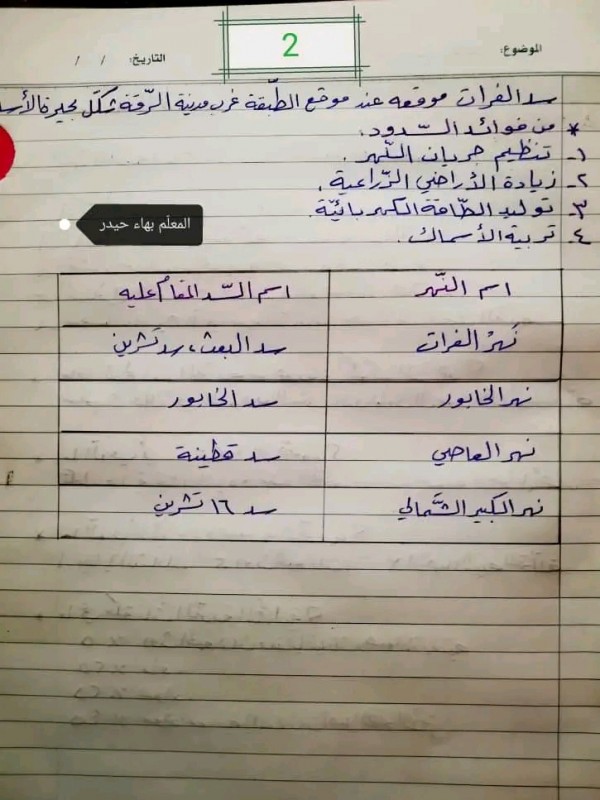 الموضوع:
2
التاريخ: / /
سد الفرات موقعه عند موقع الطّبقة غرب مدينة الرّقة شكّل بحيرة الأسد
* من فوائد السّدود:
١- تنظيم جريان النّهر.
٢- زيادة الأراضي الزّراعية.
٣- توليد الطّاقة الكهربائيّة.
المعلّم بهاء حيدر
٤- تربية الأسماك.
اسم النّهر اسم السّد المقام عليه
نهرُ الفرات سد البعث، سد تشرين
نهر الخابور سد الخابور
نهر العاصي سد قطينة
نهر الكبير الشّمالي سد ١٦ تشرين